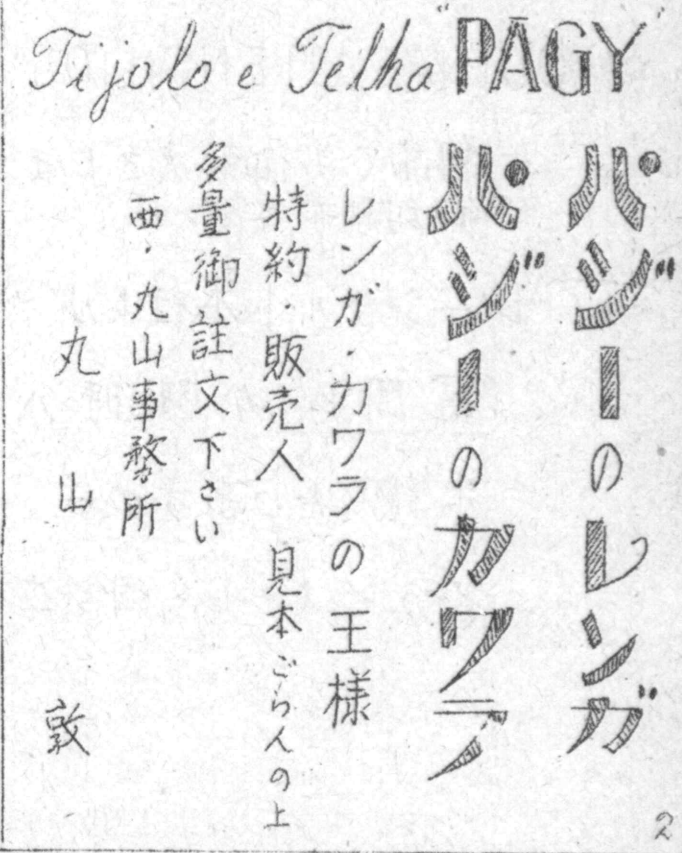 Tijolo e Telha "PAGY"
パジーのレンガ
パジーのカワラ
レンガ・カワラの王様
特約・販売人 見本ごらんの上
多量御註文下さい
西・丸山事務所
丸山 敦
2